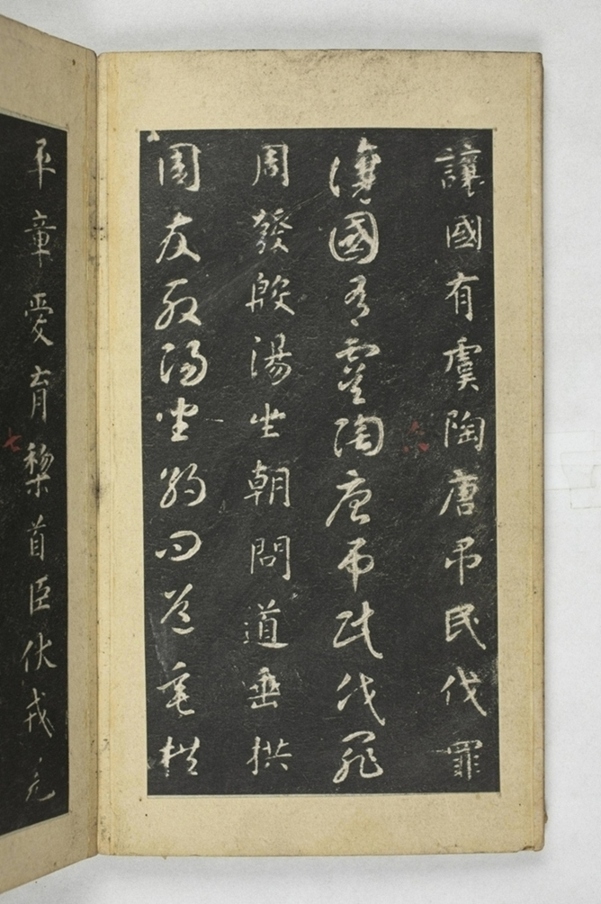 讓國有虞陶唐吊民伐罪
讓國有虞陶唐吊民伐罪
周發殷湯坐朝問道垂拱
周發殷湯坐朝問道垂拱
平章愛育黎首臣伏戎羌
七